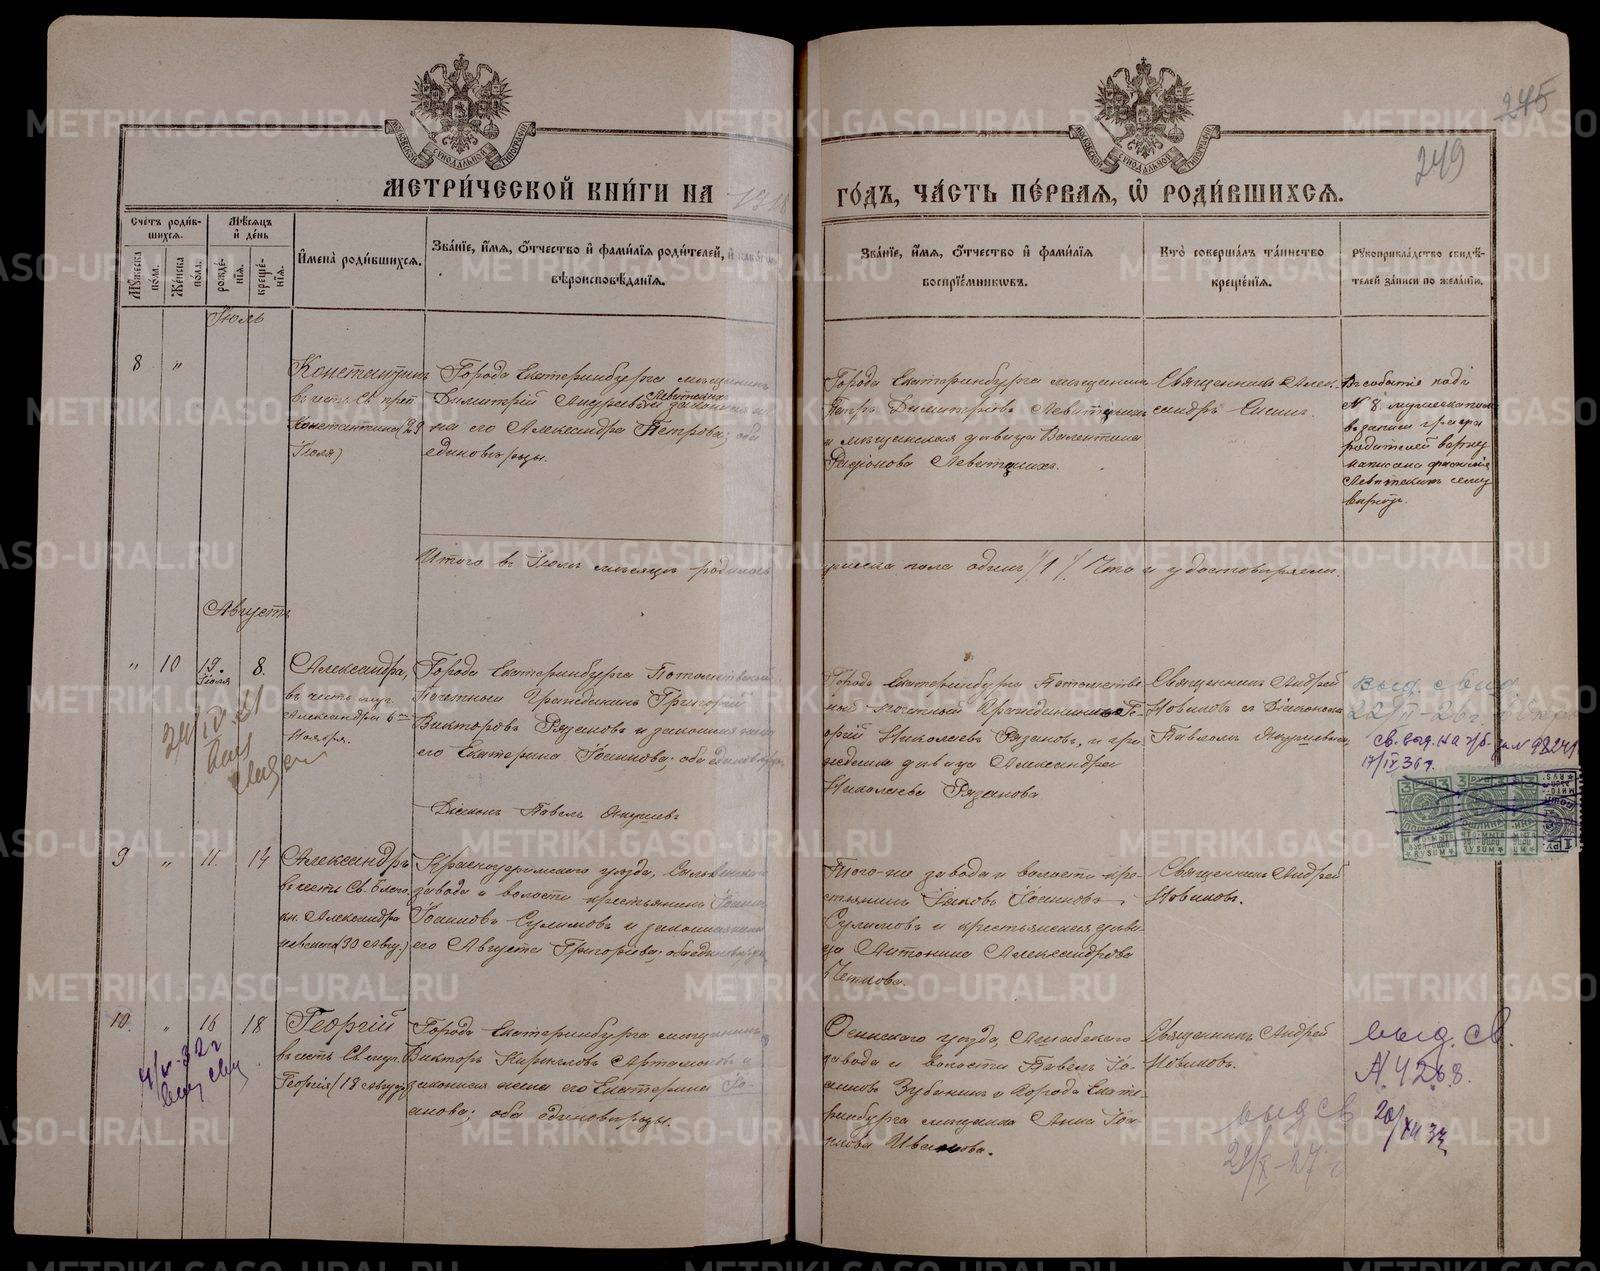 МОСКОВСКОЙ СѴНОДАЛЬНОЙ ТИПОГРАФІИ
МОСКОВСКОЙ СѴНОДАЛЬНОЙ ТИПОГРАФІИ
245
249
МЕТРИ́ЧЕСКОЙ КНИ́ГИ НА
ГО́ДЪ, ЧА́СТЬ ПЕ́РВАѦ, Ѡ҆ РОДИ́ВШИХСѦ.
Сче́тъ роди́в-
шихсѧ.
Мѣ́сѧцъ
и҆ де́нь
Мꙋ́жеска по́ла.
Же́нска по́ла.
рожде́-
нїѧ.
креще́-
нїѧ.
И҆мена̀ роди́вшихсѧ.
Зва́нїе, и҆́мѧ, ѻ҆́тчество и҆ фами́лїѧ роди́телей, и҆ како́гѡ
вѣроисповѣ́данїѧ.
Зва́нїе, и҆́мѧ, ѻ҆́тчество и҆ фами́лїѧ
воспрїе́мникѡвъ.
Кто̀ соверша́лъ та́инство
креще́нїѧ.
Рꙋкоприкла́дство свидѣ́-
телей за́писи по жела́нїю.
Іюль
8 "
Константинъ
въ честь Св. преп.
Константина (29
Іюля)
Города Екатеринбурга мѣщанинъ
Димитрій Андреевъ Левитскихъ и законная же-
на его Александра Петрова; оба
единовѣрцы.
Города Екатеринбурга мѣщанинъ
Петръ Димитріевъ Левитскихъ
и мѣщанская дѣвица Валентина
Левитскихъ.
Священникъ Алек-
сандръ
Въ событіе подъ
№ 8. мужеска пола
въ записи
родителей
написано фамилія
Левитскихъ сему
вѣрить.
Итого въ Іюлѣ мѣсяцѣ родилось
мужеска пола одинъ /1/. Что и удостовѣряемъ.
Августъ
" 10 19. 8.
Іюля
Александра,
въ честь муч.
Александры 6го
Ноября.
Города Екатеринбурга Потомственный
Почетный Гражданинъ Григорій
Викторовъ Рязановъ и законная жена
его Екатерина Іоаннова; оба единовѣрцы.
Діаконъ Павелъ Якушевъ
Города Екатеринбурга Потомствен-
ный Почетный Гражданинъ Ге-
оргій Николаевъ Рязановъ, и гра-
жданская дѣвица Александра
Николаева Рязанова
Священникъ Андрей
Новиковъ и Діаконъ
Павелъ Якушевъ
Выд. свид.
св. выд. на г/б. за № 98241
17/IV 36 г.
9 " 11. 14
Александръ
въ честь Св. Благо.
кн. Александра
Невскаго (30 Авгу.)
Красноуфимскаго уѣзда, Сыльвинскаго
завода и волости крестьянинъ Іоаннъ
Іоанновъ Сулимовъ и законная жена
его Августа Григорьева; оба единовѣрцы.
Того-же завода и волости кре-
стьянинъ Іаковъ Іоанновъ
Сулимовъ и крестьянская дѣви-
ца Антонина Александрова
Четкова.
Священникъ Андрей
Новиковъ.
10. " 16 18
Георгій
въ честь Св. муч.
Георгія (18 Августа)
Города Екатеринбурга мѣщанинъ
Викторъ Кирилловъ Артамоновъ и
законная жена его Екатерина Іо-
анова; оба единовѣрцы.
Осинскаго уѣзда, Ашабскаго
завода и волости Павелъ Іо-
анновъ Зубакинъ и Города Екате-
ринбурга мѣщанка Анна Іоан-
нова Иванова.
Священникъ Андрей
Новиковъ.
выд. св.
№ 4268.
20/XII 33
выд св
29/X-27 г
METRIKI.GASO-URAL.RU